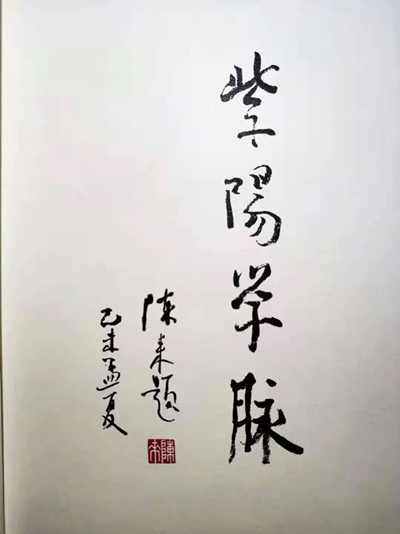 紫陽学脉
陈来题
乙未孟夏
陳来